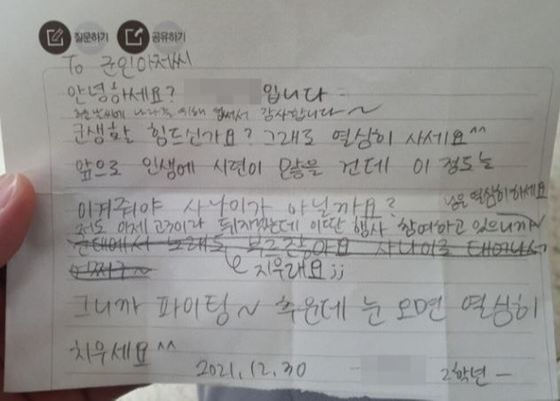 질문하기 공유하기
To 군인아저씨
안녕하세요? 입니다~
추운 날씨에 나라를 위해 힘써서 감사합니다~
군생활 힘드신가요? 그래도 열심히 사세요^^
앞으로 인생에 시련이 많을 건데 이 정도는
이겨줘야 사나이가 아닐까요?
저도 이제 고3이라 뒤지겠는데 이딴 행사 참여하고 있으니까~
군대에서 노래도 부르잖아요 사나이로 태어나서
어쩌구~
지우래요;;
그니까 파이팅~ 추운데 눈 오면 열심히
치우세요^^
2021.12.30 - 2학년 -